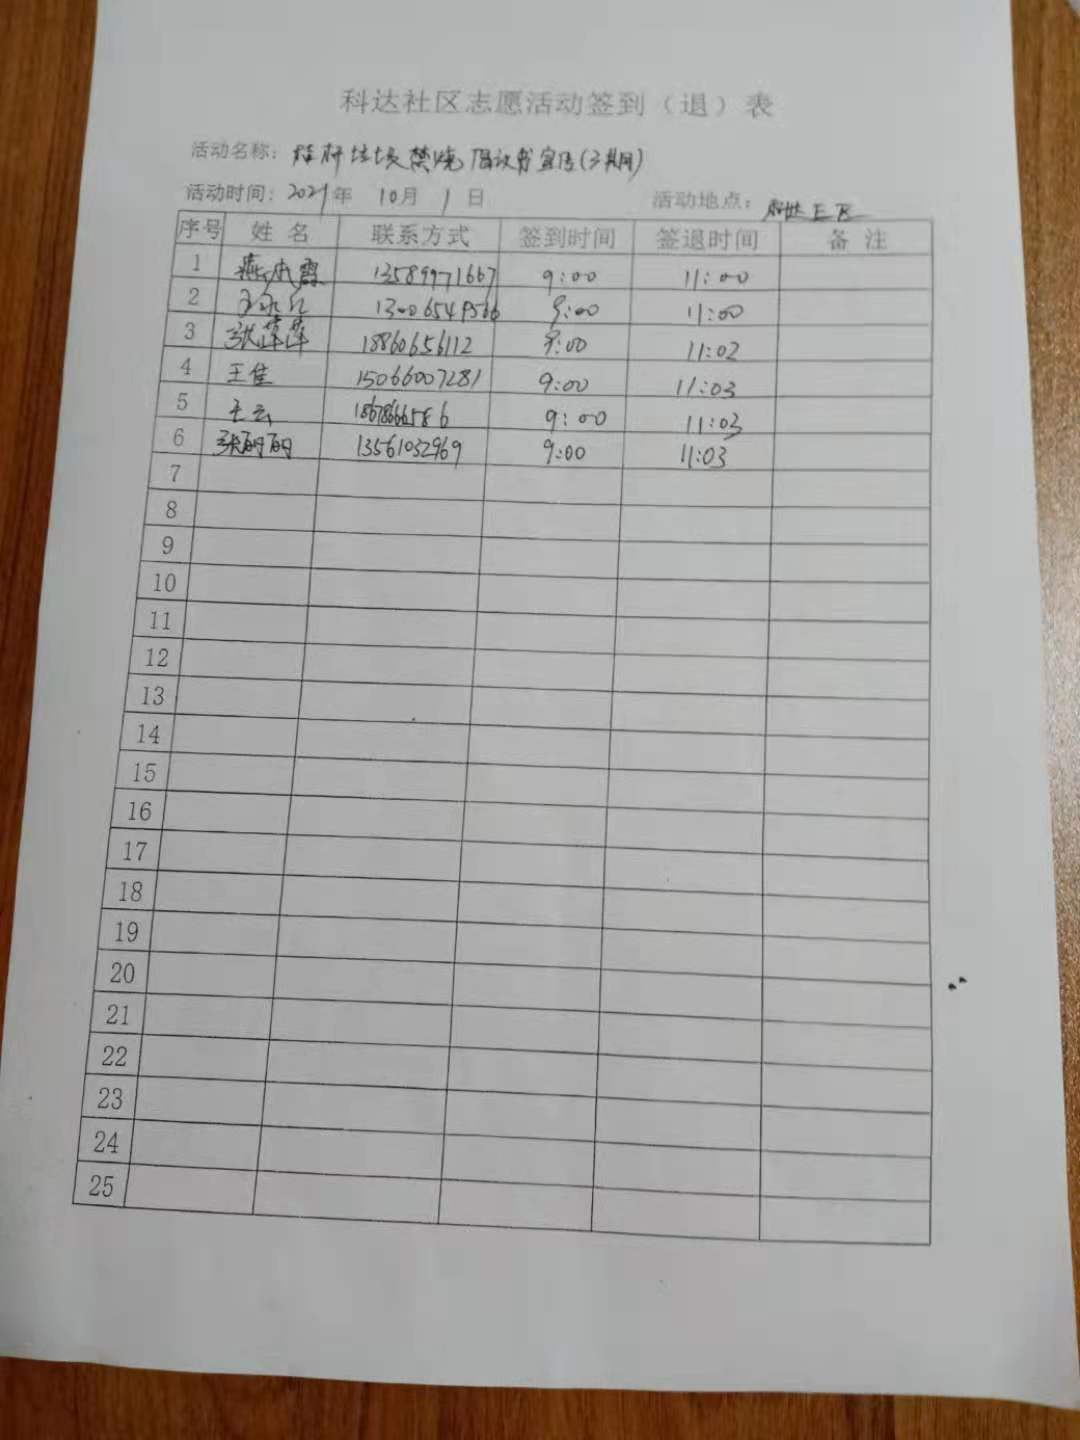 科达社区志愿活动签到（退）表
活动名称：秸秆垃圾禁烧倡议书宣传(3期)
活动时间：2021年 10月 1日 活动地点：
序号 姓名 联系方式 签到时间 签退时间 备注
1 13589971667 9:00 11:00
2 9:00 11:00
3 张萍萍 18860656112 9:00 11:02
4 王佳 15066007281 9:00 11:03
5 王云 18678666586 9:00 11:03
6 张丽丽 13561032969 9:00 11:03
7
8
9
10
11
12
13
14
15
16
17
18
19
20
21
22
23
24
25